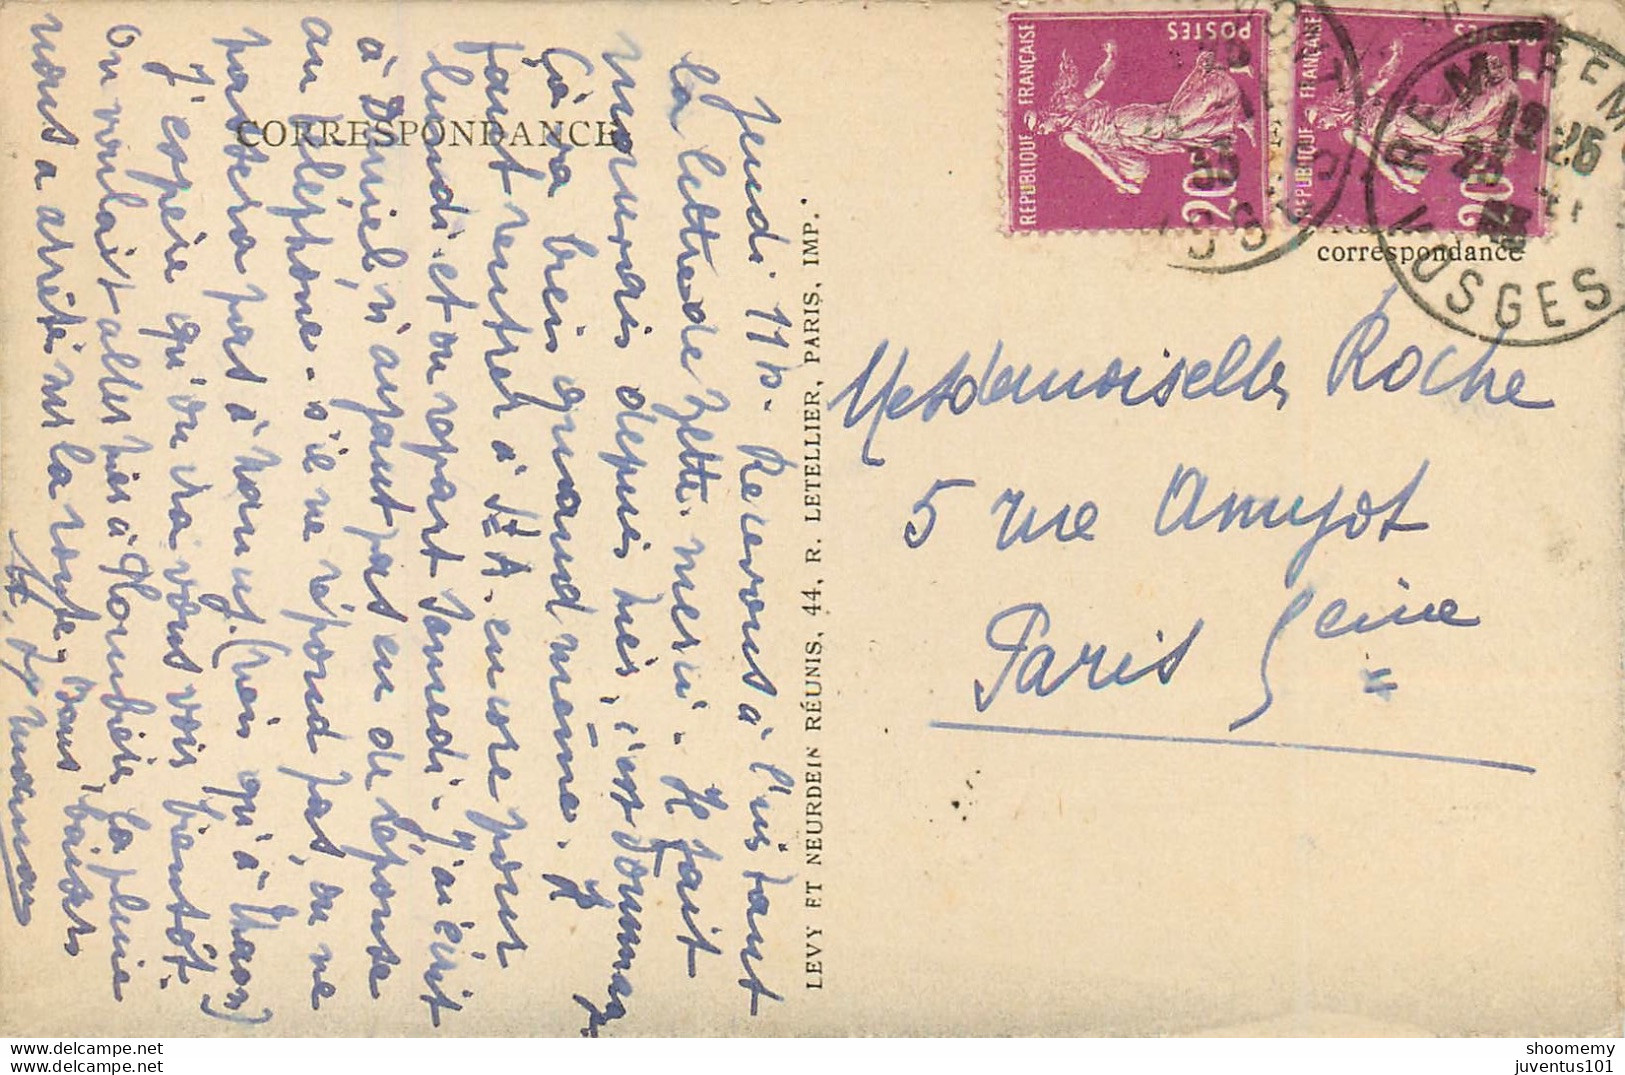 CORRESPONDANCE
Jeudi 11h. Recevons à l'instant
la lettre de Zette. merci. Il fait
mauvais depuis hier, c'est dommage.
Ça va bien quand même. Il
faut rentrer à St A. encore pour
lundi et on repart samedi. J'ai écrit
à Daniel, n'ayant pas eu de réponse
au téléphone. s'il ne répond pas, on ne
passera pas à Nancy. (rien qu'à Thaon)
J'espère qu'on ira vous voir bientôt.
On voulait aller hier à Plombières, la pluie
nous a arrêtés sur la route. Bons baisers
LEVY ET NEURDEIN RÉUNIS, 44, R. LETELLIER, PARIS, IMP.
RÉPUBLIQUE FRANÇAISE
POSTES
20c
RÉPUBLIQUE FRANÇAISE
POSTES
20c
REMIREMONT
12-25
VOSGES
VOSGES
correspondance
Mesdemoiselles Roche
5 rue Amyot
Paris Seine
shoomemy
juventus101